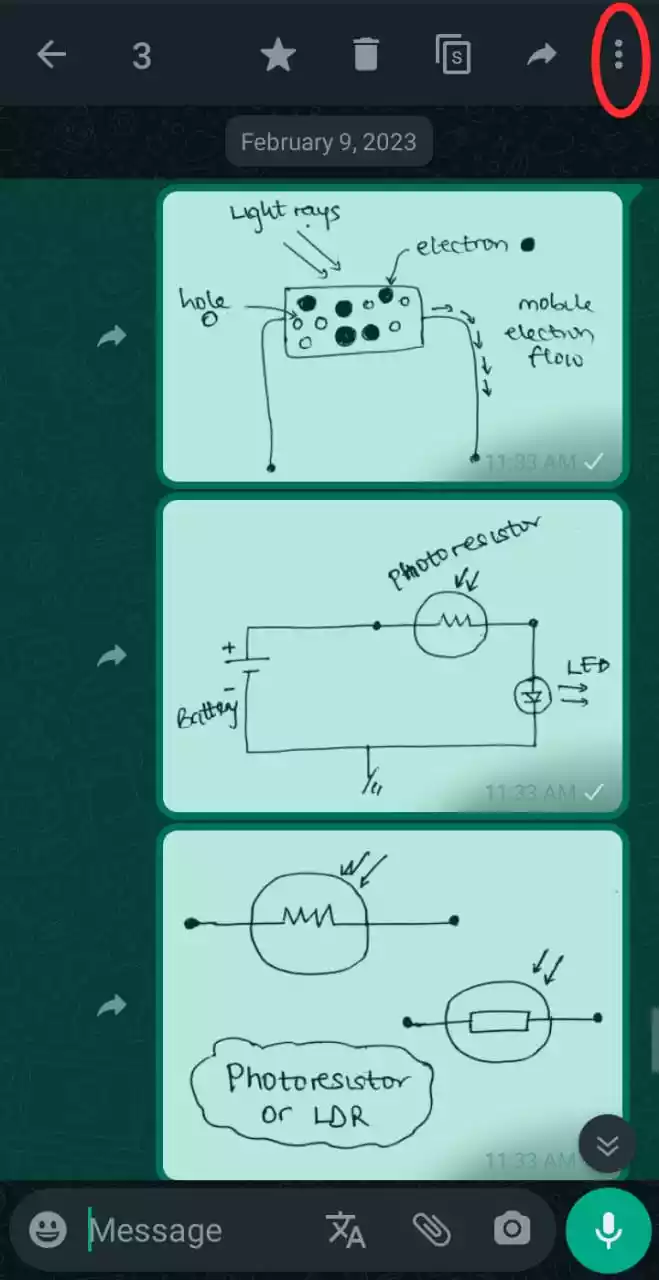 3
February 9, 2023
Light rays
electron
hole
mobile
electron
flow
11:33 AM
Photoresistor
+
LED
-
Battery
11:33 AM
Photoresistor
or LDR
11:33 AM
Message